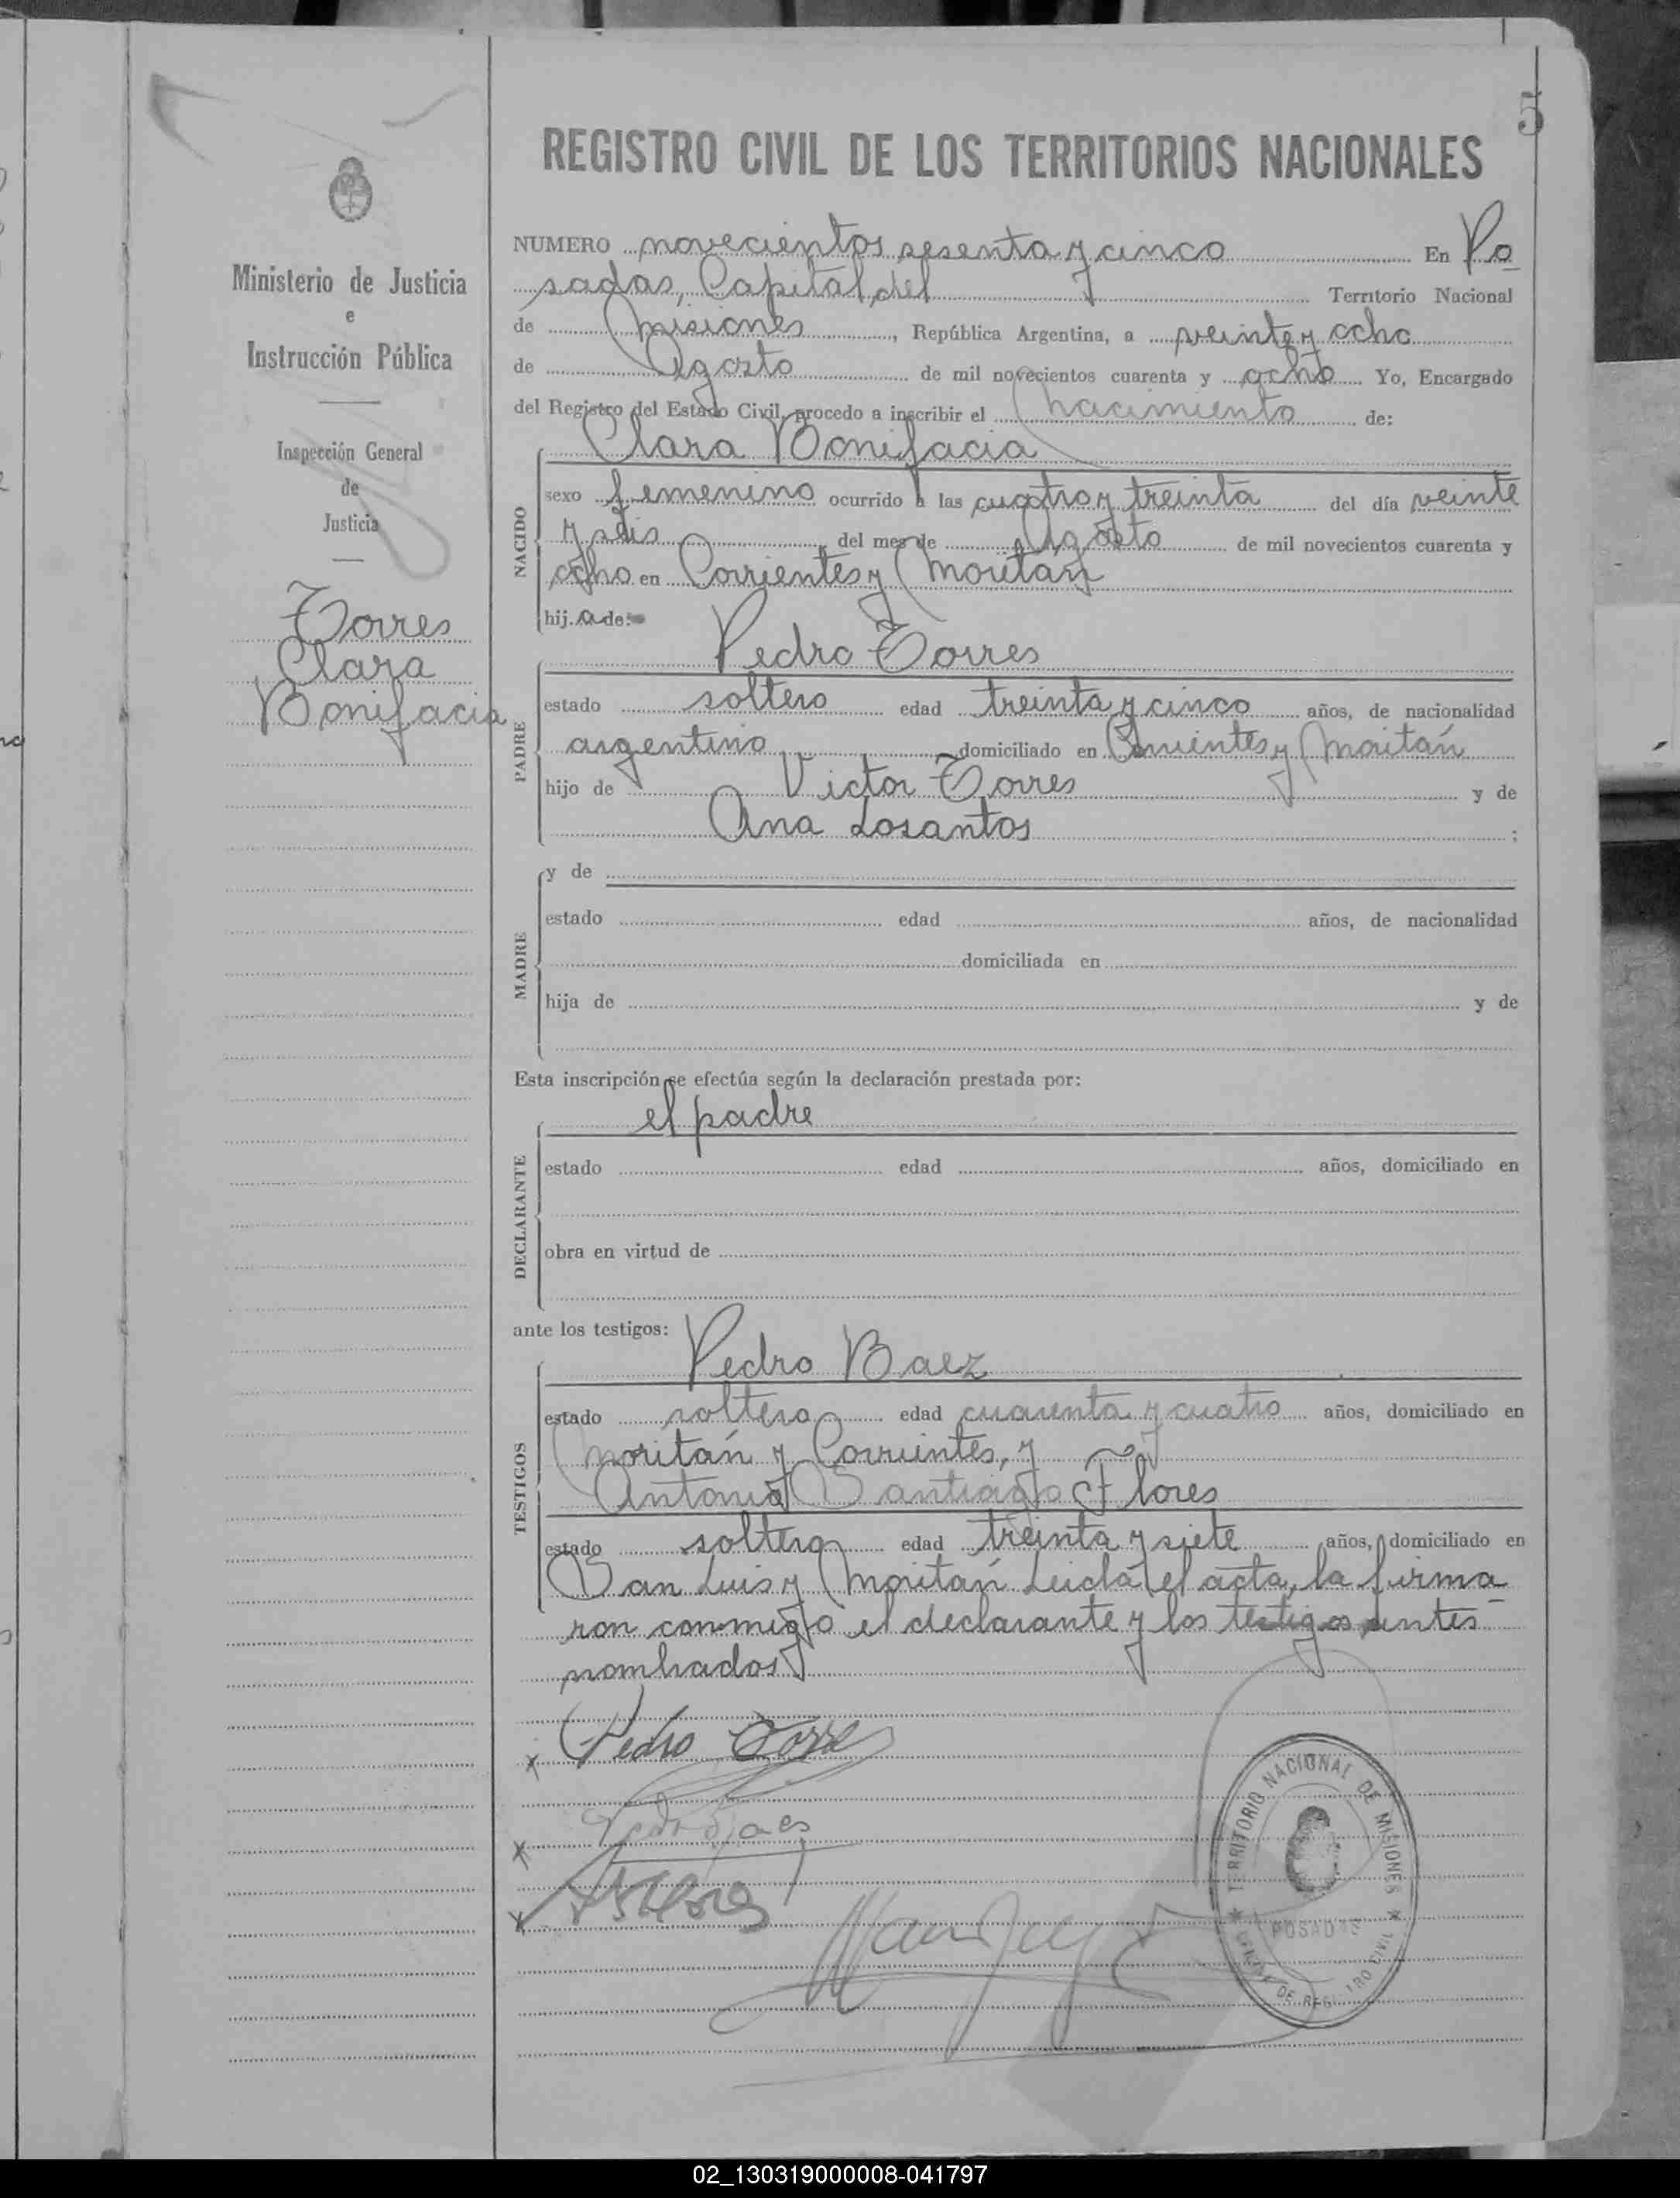 5
REGISTRO CIVIL DE LOS TERRITORIOS NACIONALES
Ministerio de Justicia
e
Instrucción Pública
Inspección General
de
Justicia
Torres
Clara
Bonifacia
NUMERO novecientos sesenta y cinco En Po
sadas, Capital del Territorio Nacional
de Misiones, República Argentina, a veinte y ocho
de Agosto de mil novecientos cuarenta y ocho Yo, Encargado
del Registro del Estado Civil, procedo a inscribir el Nacimiento de:
Clara Bonifacia
NACIDO
sexo femenino ocurrido a las cuatro y treinta del día veinte
y seis del mes de Agosto de mil novecientos cuarenta y
ocho en Corrientes y Moritán
hija de:
Pedro Torres
PADRE
estado soltero edad treinta y cinco años, de nacionalidad
argentino domiciliado en Corrientes y Moritán
hijo de Victor Torres y de
Ana Losantos ;
MADRE
y de
estado edad años, de nacionalidad
domiciliada en
hija de y de
Esta inscripción se efectúa según la declaración prestada por:
el padre
DECLARANTE
estado edad años, domiciliado en
obra en virtud de
ante los testigos:
Pedro Baez
TESTIGOS
estado soltero edad cuarenta y cuatro años, domiciliado en
Moritán y Corrientes, y
Antonio Santiago Flores
estado soltero edad treinta y siete años, domiciliado en
San Luis y Moritán Leida el acta, la firma
ron conmigo el declarante y los testigos antes
nombrados
x Pedro Torres
x Pedro Baes
x
TERRITORIO NACIONAL DE MISIONES
POSADAS
DE REGISTRO CIVIL
02_130319000008-041797